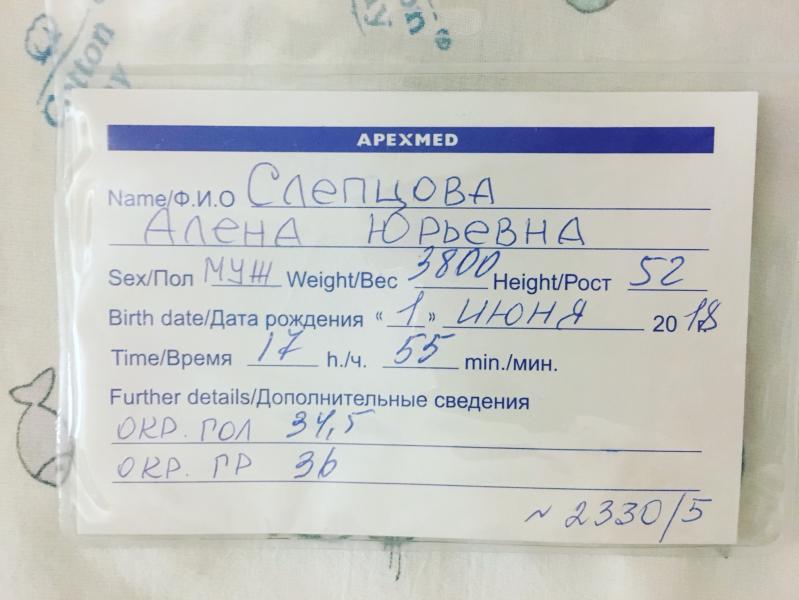 APEXMED
Name/Ф.И.О Слепцова
Алена Юрьевна
Sex/Пол муж Weight/Вес 3800 Height/Рост 52
Birth date/Дата рождения “ 1 ” июня 2018
Time/Время 17 h./ч. 55 min./мин.
Further details/Дополнительные сведения
окр. гол 34,5
окр. гр 36
~ 2330/5